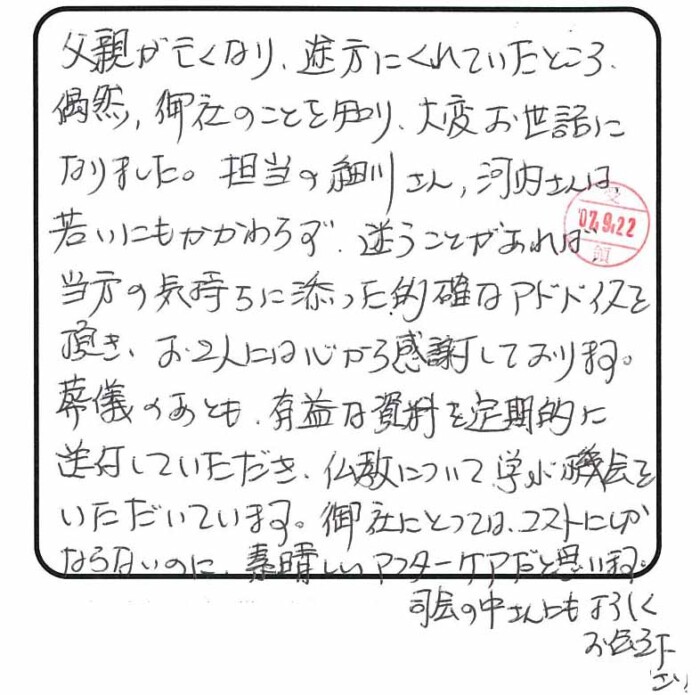 父親が亡くなり、途方にくれていたところ、
偶然、御社のことを知り、大変お世話に
なりました。担当の細川さん、河内さんは、
若いにもかかわらず、迷うことがあれば、
当方の気持ちに添った的確なアドバイスを
頂き、お2人には心から感謝しております。
葬儀のあとも、有益な資料を定期的に
送付していただき、仏教について学ぶ機会を
いただいています。御社にとっては、コストにしか
ならないのに、素晴しいアフターケアだと思います。
司会の中さんにもよろしく
お伝え下
さい
受
'07.9.22
領